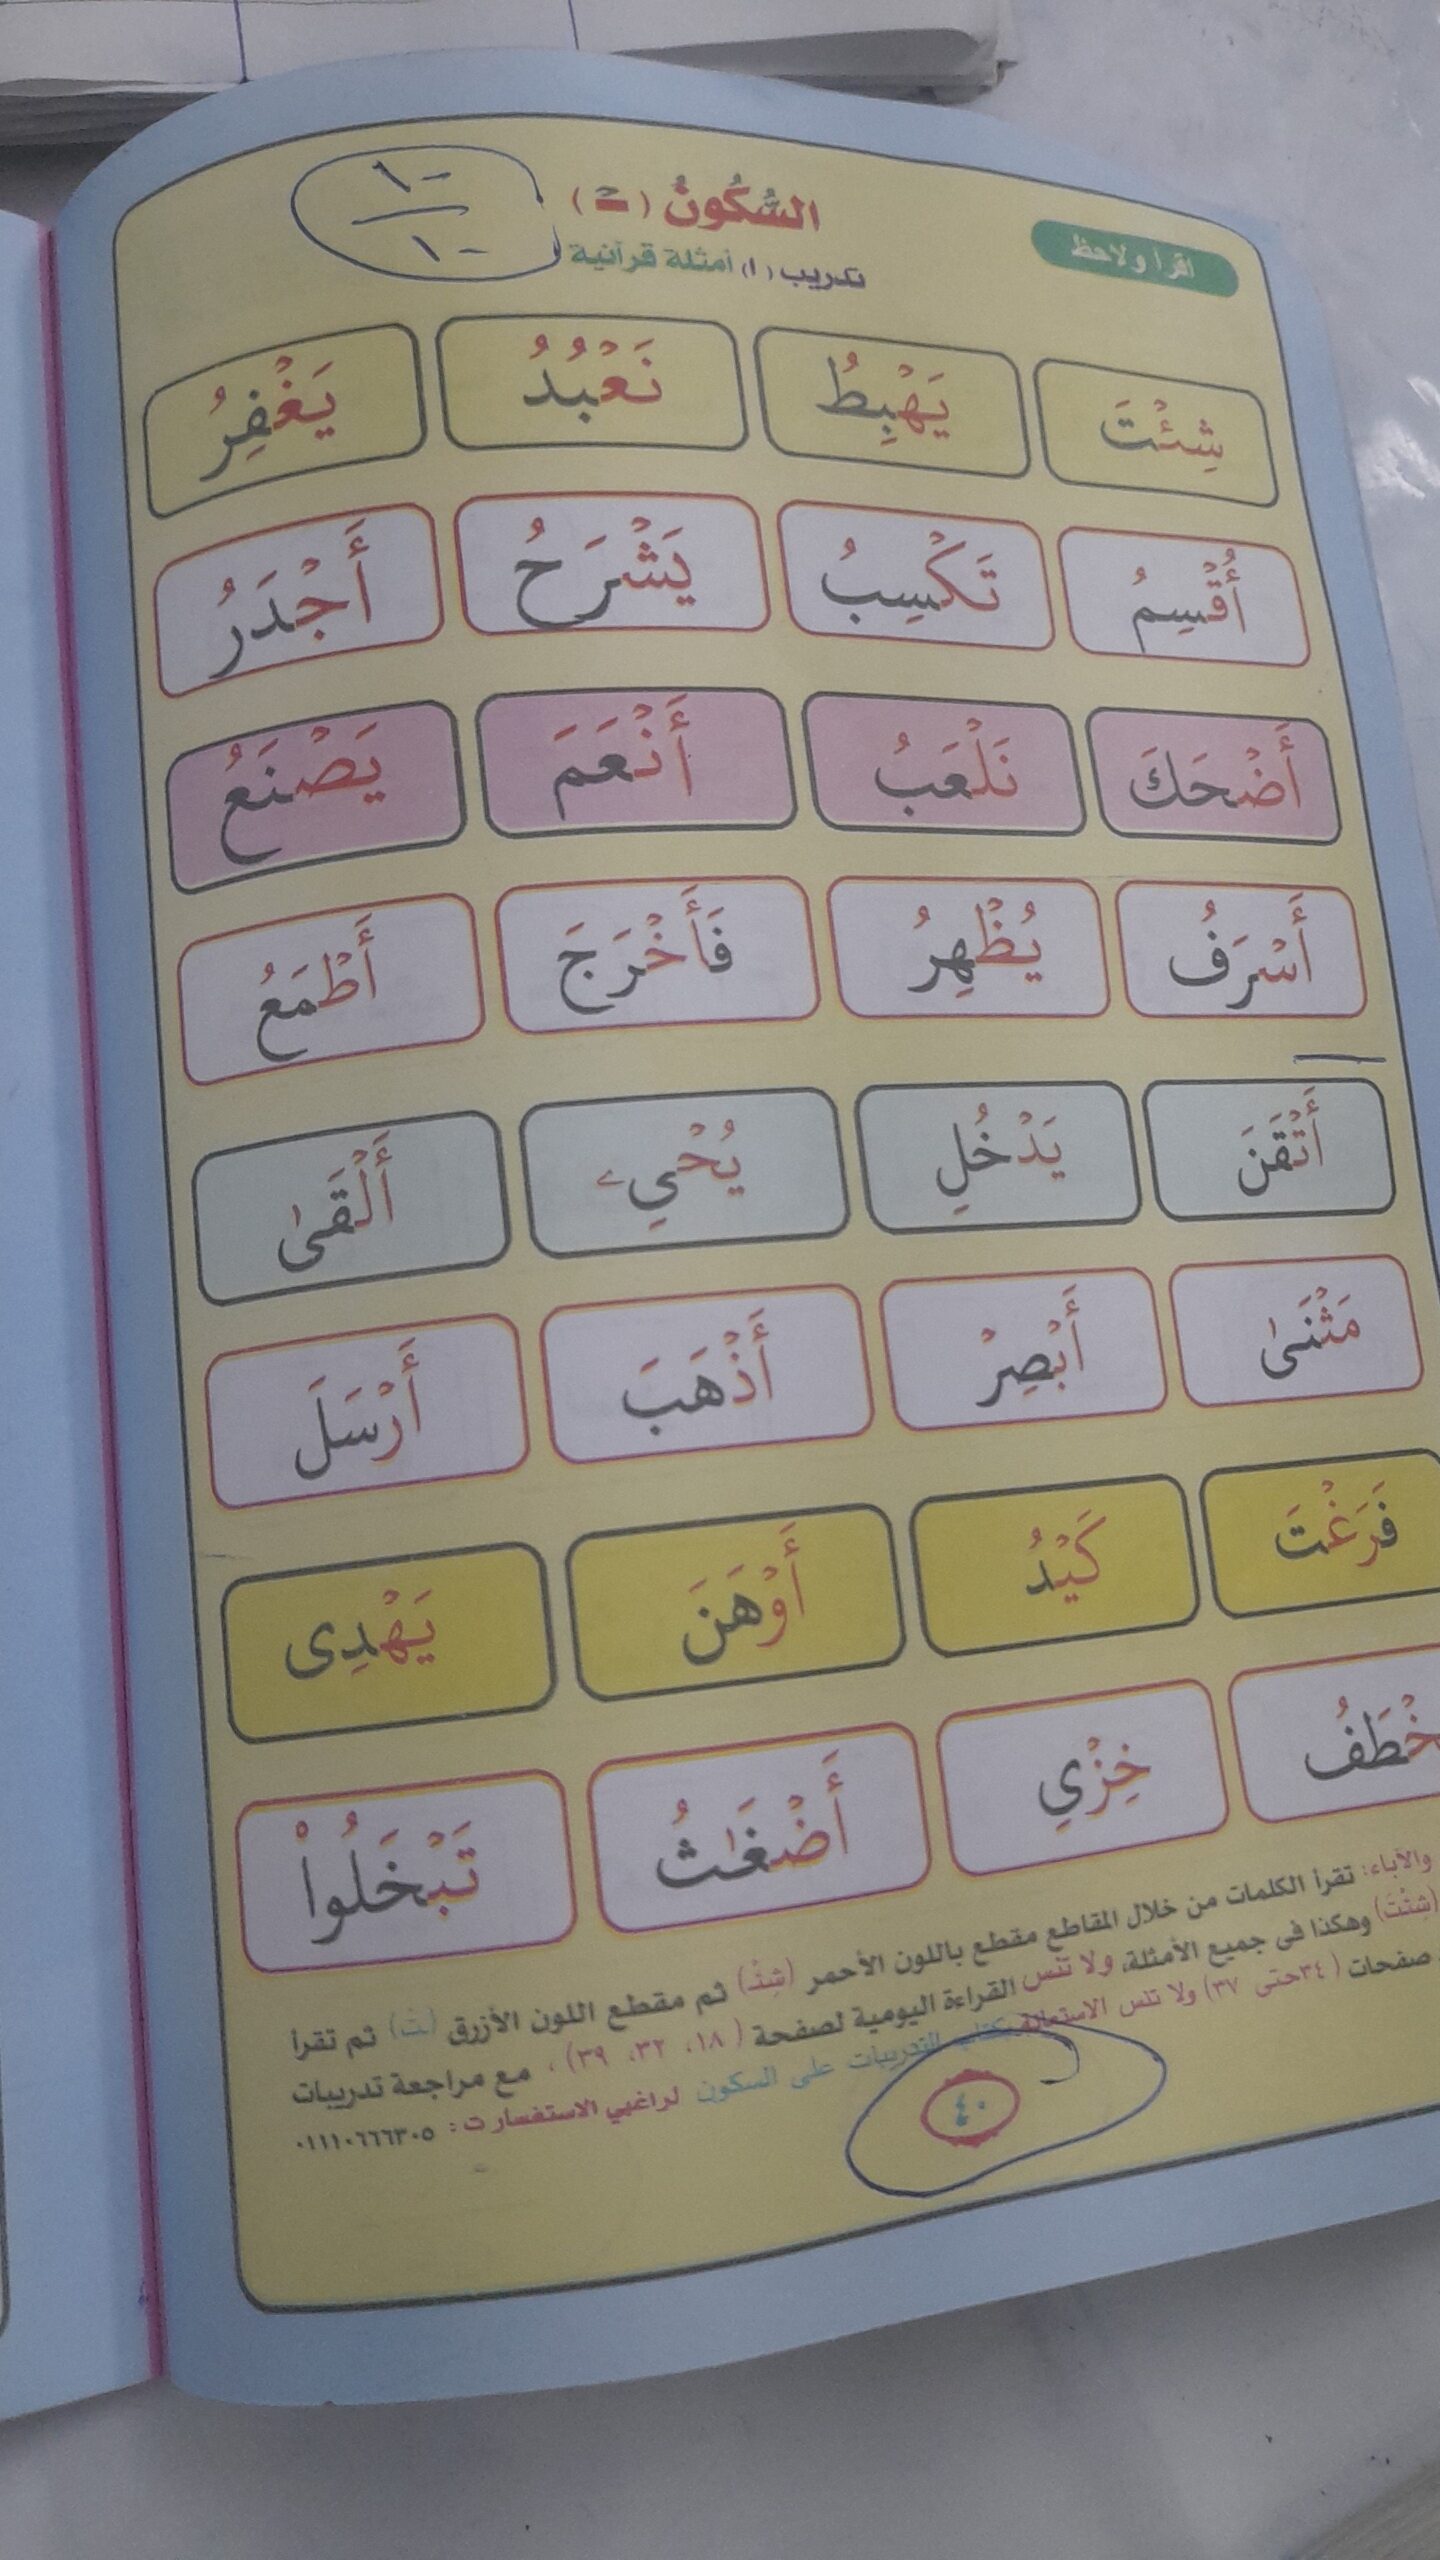 اقرأ ولاحظ
السُّكُونُ ( ـْ )
١٠
١٠
تدريب (١) أمثلة قرآنية
شِئْتَ يَهْبِطُ نَعْبُدُ يَغْفِرُ
أُقْسِمُ تَكْسِبُ يَشْرَحُ أَجْدَرُ
أَضْحَكَ نَلْعَبُ أَنْعَمَ يَصْنَعُ
أَسْرَفُ يُظْهِرُ فَأَخْرَجَ أَطْمَعُ
أَتْقَنَ يَدْخُلِ يُحْيِۦ أَلْقَىٰ
مَثْنَىٰ أَبْصِرْ أَذْهَبَ أَرْسَلَ
فَرَغْتَ كَيْدُ أَوْهَنَ يَهْدِى
خْطَفُ خِزْيِ أَضْغَٰثُ تَبْخَلُوا۟
والآباء: تقرأ الكلمات من خلال المقاطع مقطع باللون الأحمر (شِئْ) ثم مقطع اللون الأزرق (تَ) ثم تقرأ
(شِئْتَ) وهكذا فى جميع الأمثلة، ولا تنس القراءة اليومية لصفحة (١٨، ٣٢، ٣٩)، مع مراجعة تدريبات
صفحات (٣٤حتى ٣٧) ولا تنس الاستعانة بكتاب التدريبات على السكون لراغبي الاستفسار ت: ٠١١١٠٦٦٦٣٠٥
٤٠